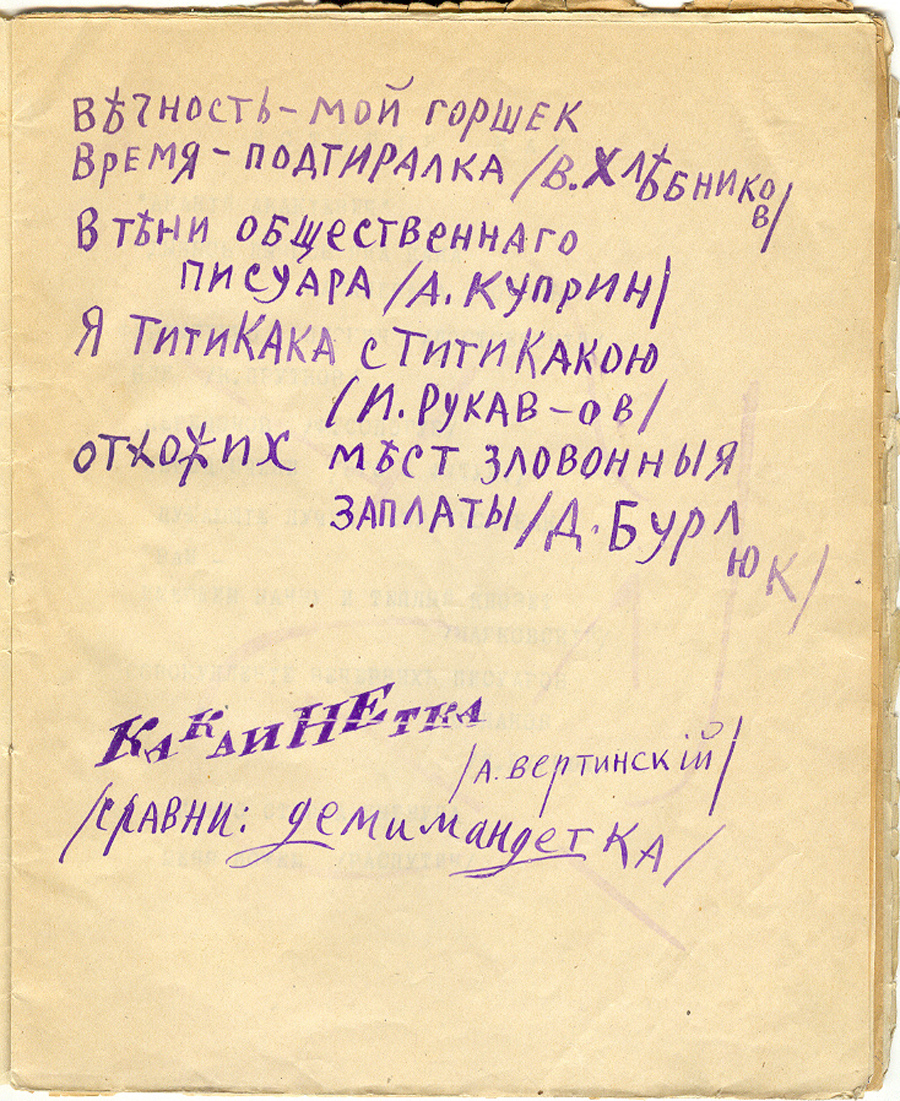 ВѢЧНОСТЬ – МОЙ ГОРШЕК
ВРЕМЯ – ПОДТИРАЛКА /В. ХЛѢБНИКОВ/
В ТѢНИ ОБЩЕСТВЕННАГО
ПИСУАРА /А. КУПРИН/
Я ТИТИКАКА С ТИТИКАКОЮ
/И. РУКАВ-ОВ/
ОТХОЖИХ МѢСТ ЗЛОВОННЫЯ
ЗАПЛАТЫ /Д. БУРЛЮК/
КАКАИНЕТКА
/А. ВЕРТИНСКІЙ/
/СРАВНИ: демимандетКА/